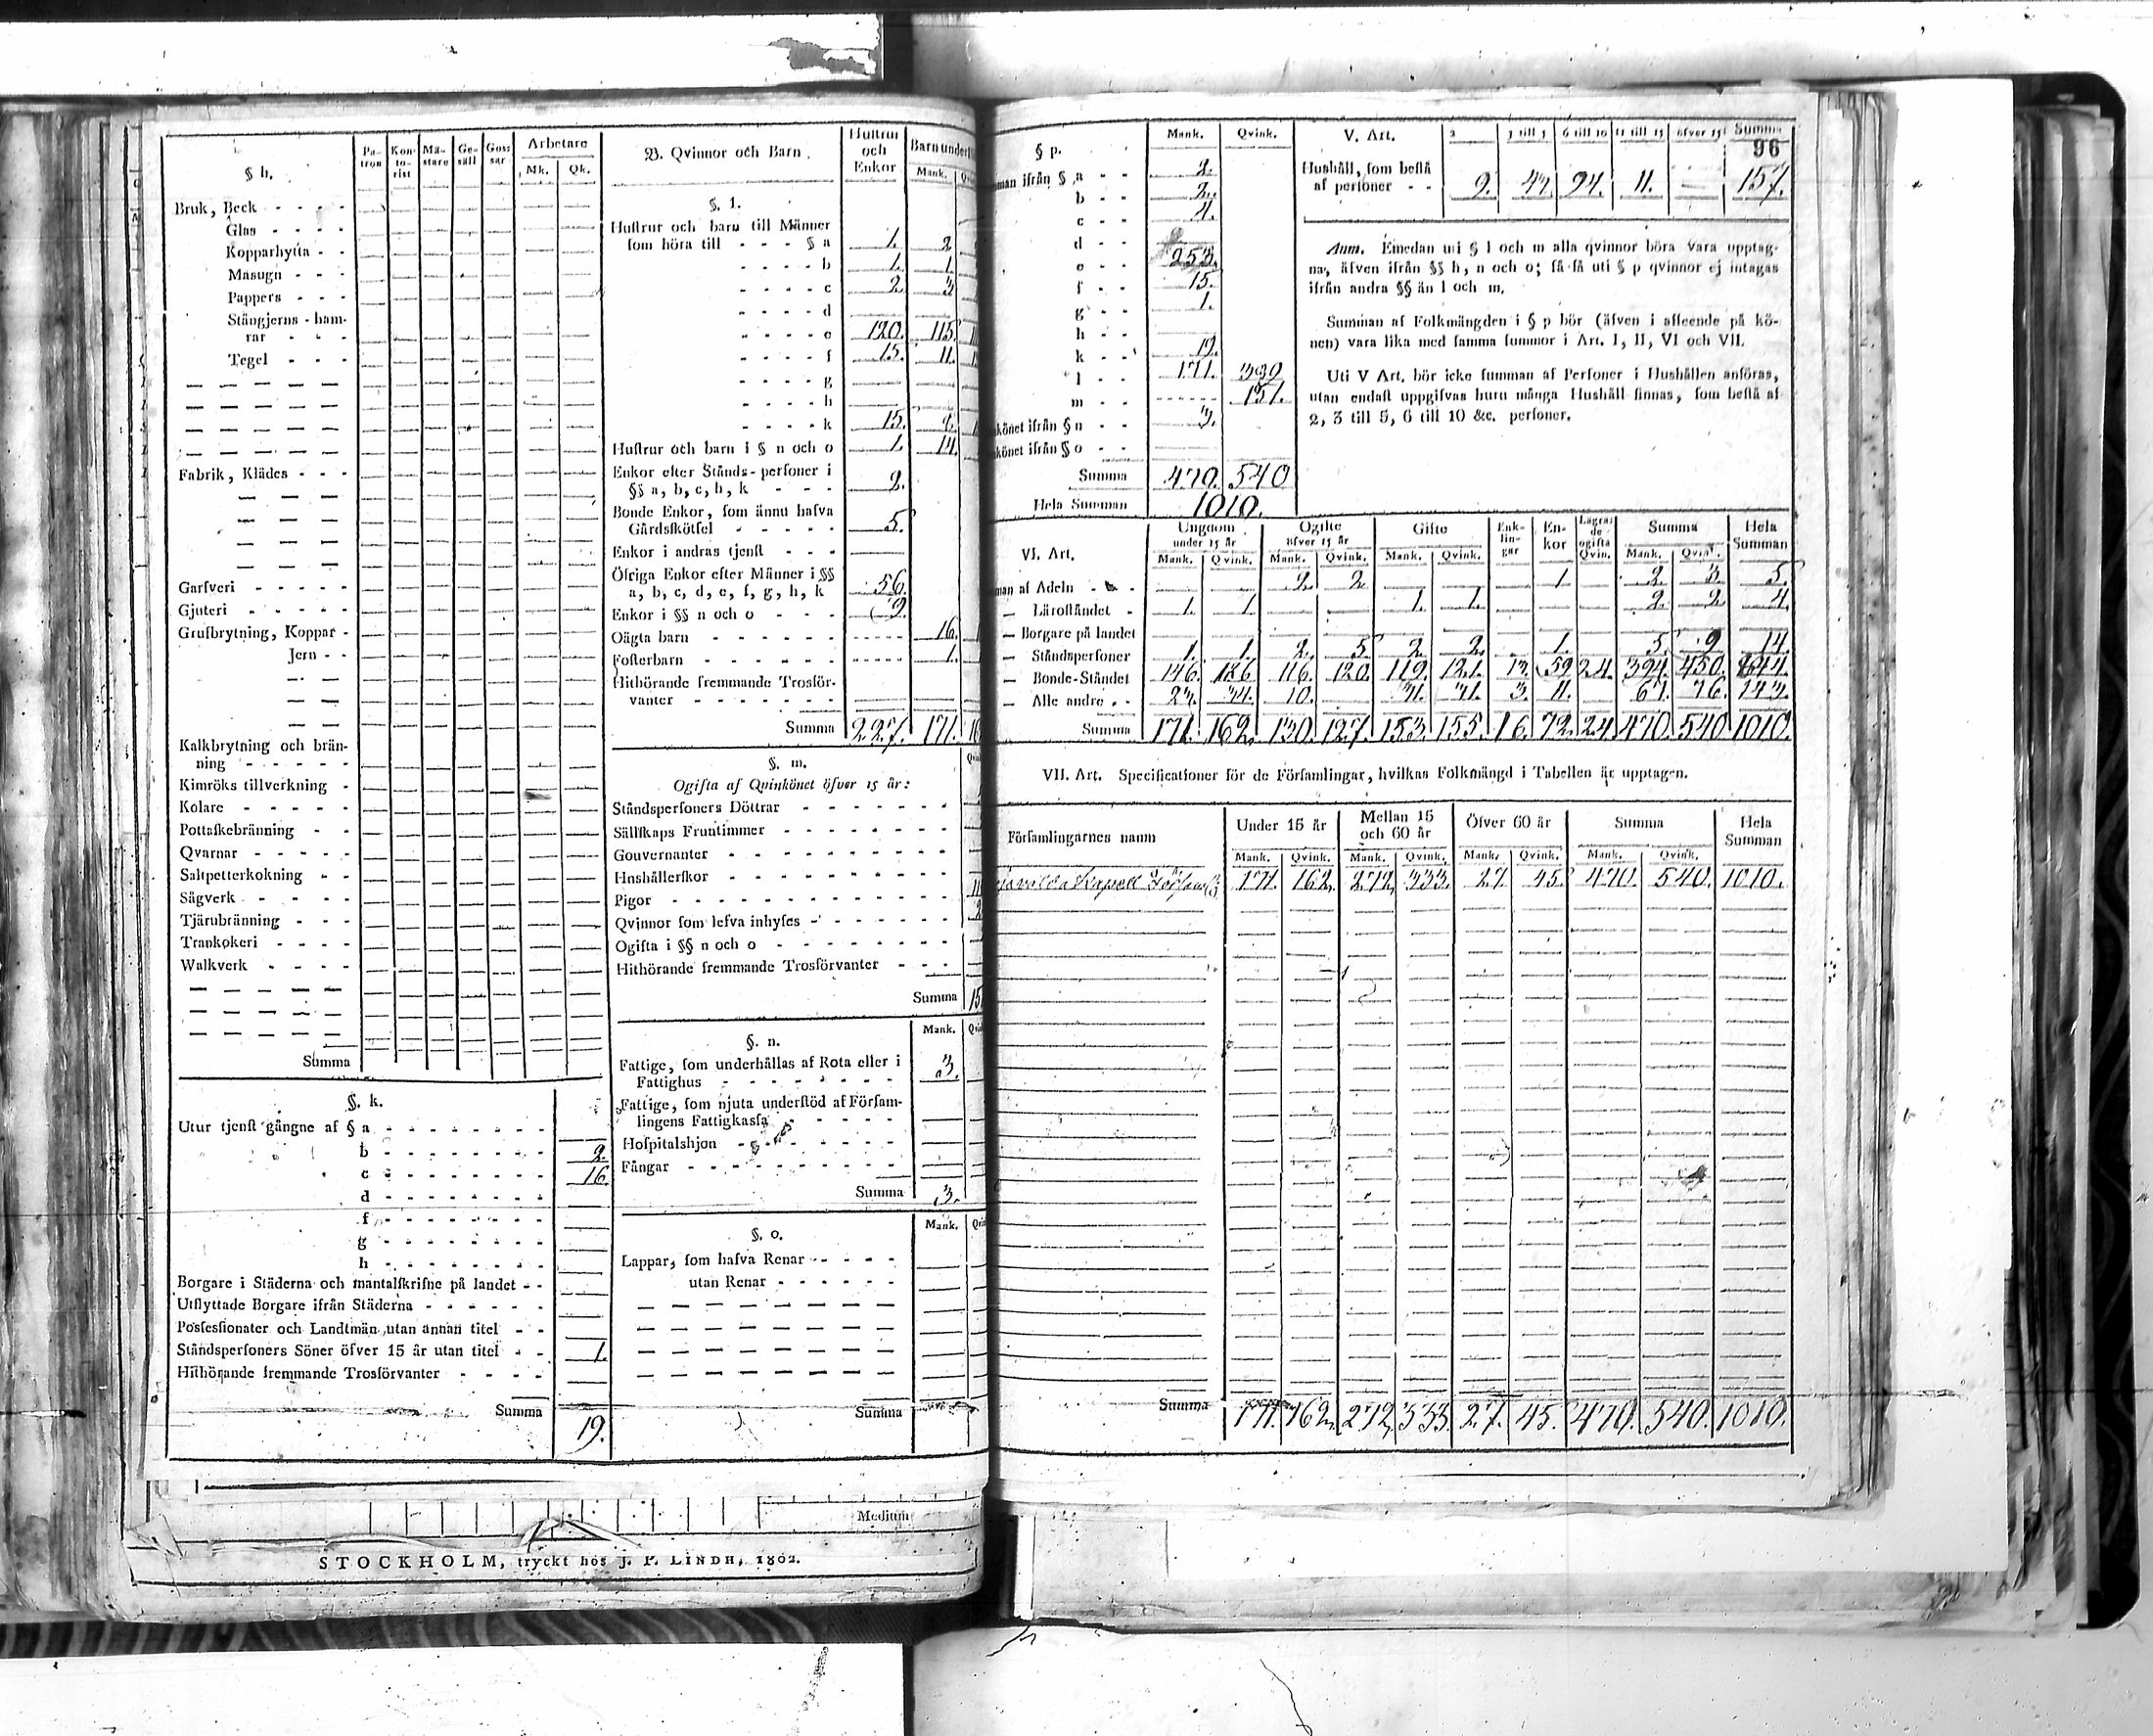 § h.
Pa-tron Kon-to-rist Mä-stare Ge-säll Gos-sar Arbetare
Mk. Qk.
Bruk, Beck - - - -
Glas - - - -
Kopparhytta - -
Masugn - - -
Pappers - - -
Stångjerns-ham-
rar - - -
Tegel - - -
Fabrik, Klädes - - -
Garfveri - - - - -
Gjuteri - - - - -
Grufbrytning, Koppar -
Jern - -
Kalkbrytning och brän-
ning - - - - -
Kimröks tillverkning -
Kolare - - - - -
Pottaskebränning - -
Qvarnar - - - - -
Saltpetterkokning - -
Sågverk - - - - -
Tjärubränning - - -
Trankokeri - - - -
Walkverk - - - -
Summa
§. k.
Utur tjenst gångne af § a - - - - - - - -
b - - - - - - - - 2.
c - - - - - - - - 16
d - - - - - - - -
f - - - - - - - -
g - - - - - - - -
h - - - - - - - -
Borgare i Städerna och mantalskrifne på landet - -
Utflyttade Borgare ifrån Städerna - - - - - -
Possessionater och Landtmän utan annan titel - -
Ståndspersoners Söner öfver 15 år utan titel - - 1.
Hithörande fremmande Trosförvanter - - - -
Summa 19.
B. Qvinnor och Barn.
Hustrur och Enkor
Mank.
§. l.
Hustrur och barn till Männer
som höra till - - - § a 1. 2
- - - - b 1. 1.
- - - - c 2. 3
- - - - d
- - - - e 120. 115.
- - - - f 15. 11.
- - - - g
- - - - h
- - - - k 15.
Hustrur och barn i § n och o 1. 14.
Enkor efter Stånds-personer i
§§ a, b, c, h, k - - - 2.
Bonde Enkor, som ännu hafva
Gårdsskötsel - - - - - 5.
Enkor i andras tjenst - - -
Öfriga Enkor efter Männer i §§
a, b, c, d, e, f, g, h, k 56
Enkor i §§ n och o - - - 9.
Oägta barn - - - - - - 16.
Fosterbarn - - - - - - 1.
Hithörande fremmande Trosför-
vanter - - - - - - -
Summa 227. 171.
§. m.
Ogifta af Qvinkönet öfver 15 år:
Ståndspersoners Döttrar - - - - - - -
Sällskaps Fruntimmer - - - - - - - -
Gouvernanter - - - - - - - - -
Hushållerskor - - - - - - - - -
Pigor - - - - - - - - - - -
Qvinnor som lefva inhyses - - - - - -
Ogifta i §§ n och o - - - - - - - -
Hithörande fremmande Trosförvanter - - -
Summa
§. n.
Mank.
Fattige, som underhållas af Rota eller i
Fattighus - - - - - - - - 3.
Fattige, som njuta understöd af Försam-
lingens Fattigkassa - - - - -
Hospitalshjon - - - - - - -
Fångar - - - - - - - - -
Summa 3.
§. o.
Mank.
Lappar, som hafva Renar - - - - -
utan Renar - - - - - -
Summa
Medium
STOCKHOLM, tryckt hos J. P. LINDH, 1802.
§ p. Mank. Qvink.
ifrån § a - - 2.
b - - 2.
c - - 4.
d - -
e - - 253.
f - - 15.
g - - 1.
h - -
k - - 19.
l - - 171. 389
m - - - - - - - 151.
könet ifrån § n - - 3.
könet ifrån § o - -
Summa 470. 540
Hela Summan 1010.
V. Art. 2 3 till 5 6 till 10 11 till 15 öfver 15 Summa
96
Hushåll, som bestå
af personer - - 9. 94. 11. 157.
Anm. Emedan uti § l och m alla qvinnor böra vara upptag-
na, äfven ifrån §§ h, n och o; få få uti § p qvinnor ej intagas
ifrån andra §§ än l och m.
Summan af Folkmängden i § p bör (äfven i afseende på kö-
nen) vara lika med samma summor i Art. I, II, VI och VII.
Uti V Art. bör icke summan af Personer i Hushållen anföras,
utan endast uppgifvas huru många Hushåll finnas, som bestå af
2, 3 till 5, 6 till 10 &c. personer.
VI. Art.
Ungdom under 15 år Ogifte öfver 15 år Gifte Enk-lin-gar En-kor Lägrade ogifta Qvin. Summa Hela Summan
Mank. Qvink. Mank. Qvink. Mank. Qvink. Mank. Qvink.
af Adeln - - 2 2 1 2 3 5
— Läroståndet - 1. 1 1. 1. 2. 2 4.
— Borgare på landet
— Ståndspersoner 1. 1. 2. 5 2 2. 1. 5. 9 14.
— Bonde-Ståndet 146. 126 116. 120. 119. 121. 13. 59 24. 394. 450. 844.
— Alle andre - - 23. 34. 10. 31. 31. 3. 11. 67. 76. 143.
Summa 171. 162. 130. 127. 153. 155. 16. 72. 24 470. 540 1010.
VII. Art. Specificationer för de Församlingar, hvilkas Folkmängd i Tabellen är upptagen.
Församlingarnes namn Under 15 år Mellan 15 och 60 år Öfver 60 år Summa Hela Summan
Mank. Qvink. Mank. Qvink. Mank. Qvink. Mank. Qvink.
Kapell 171. 162. 272. 333. 27. 45. 470. 540. 1010.
Summa 171. 162. 272. 333. 27. 45. 470. 540. 1010.